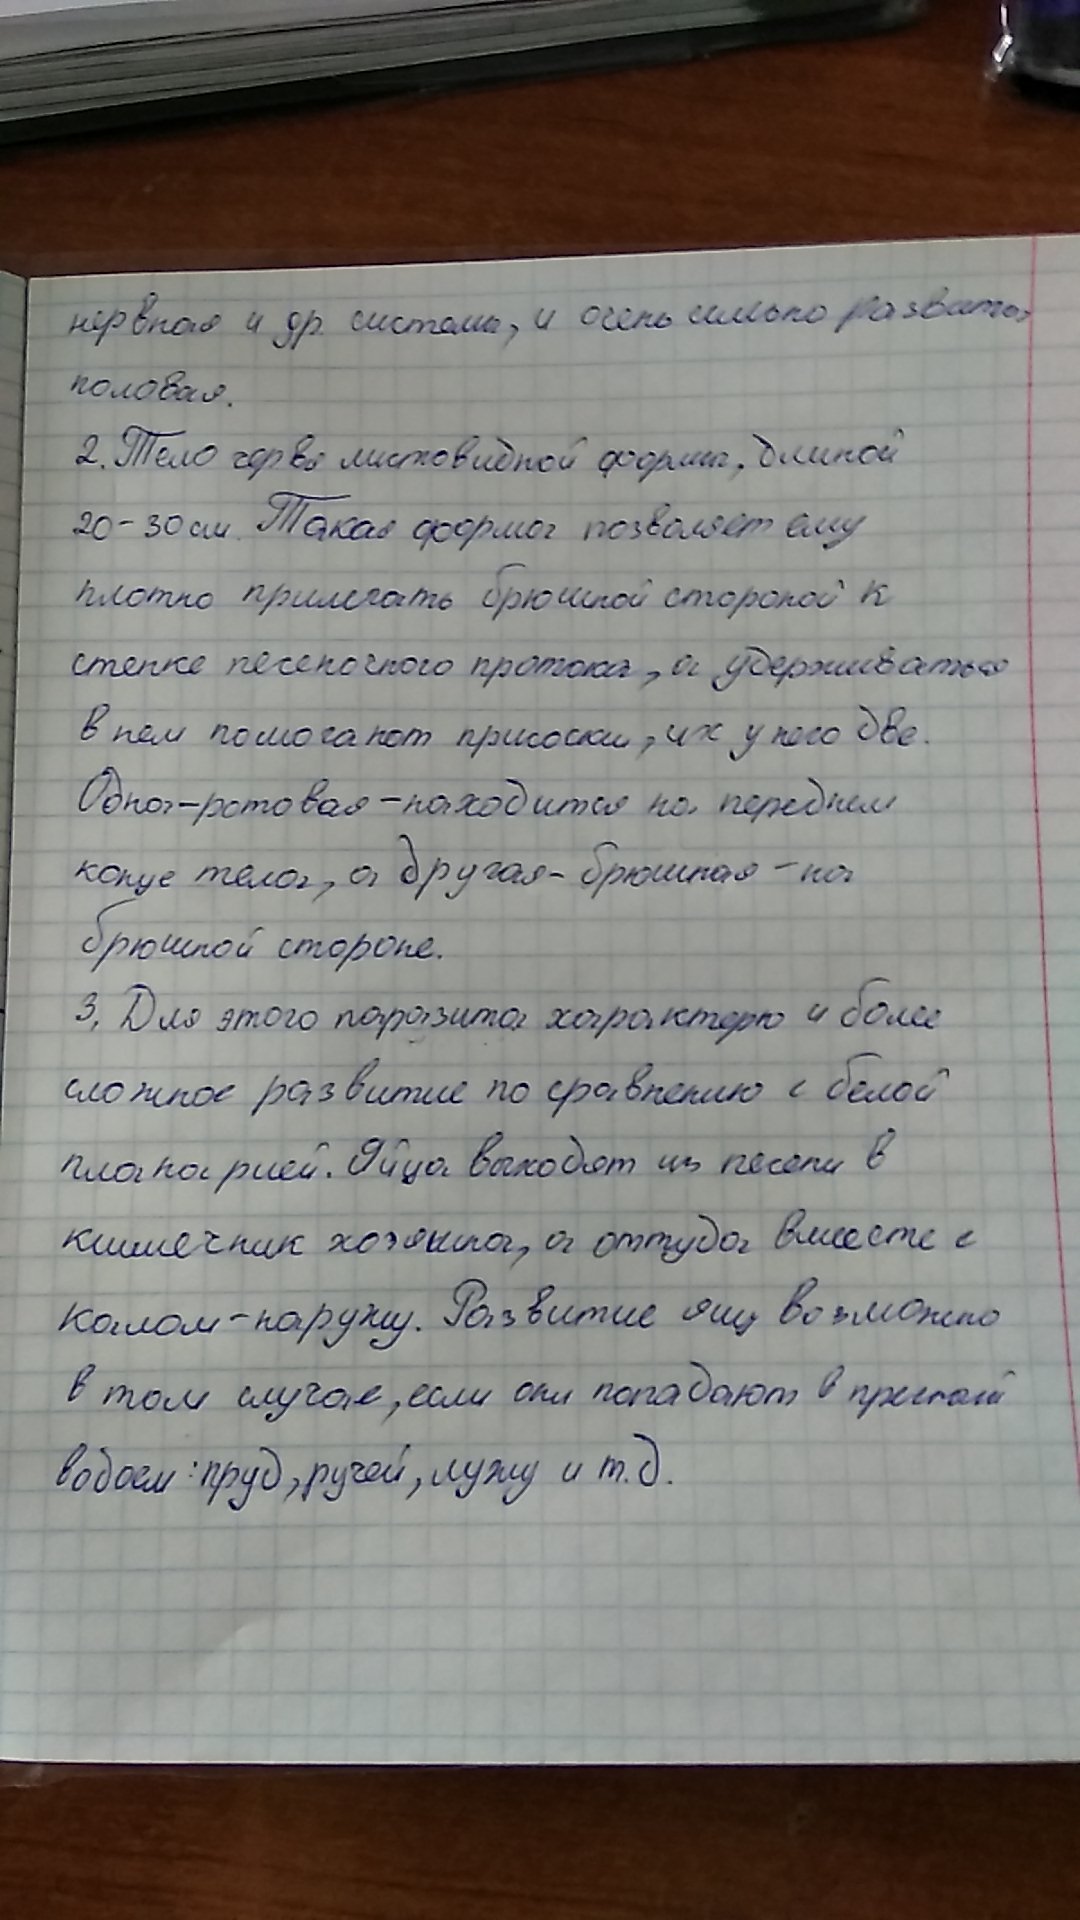 нервная и др. системы, и очень сильно развита
половая.
2. Тело червя листовидной формы, длиной
20-30 см. Такая форма позволяет ему
плотно прилегать брюшной стороной к
стенке печеночного протока, а удерживаться
в нем помогают присоски, их у него две.
Одна-ротовая-находится на переднем
конце тела, а другая-брюшная-на
брюшной стороне.
3. Для этого паразита характерно и более
сложное развитие по сравнению с белой
планарией. Яйца выходят из печени в
кишечник хозяина, а оттуда вместе с
калом-наружу. Развитие яиц возможно
в том случае, если они попадают в пресный
водоем: пруд, ручей, лужу и т.д.